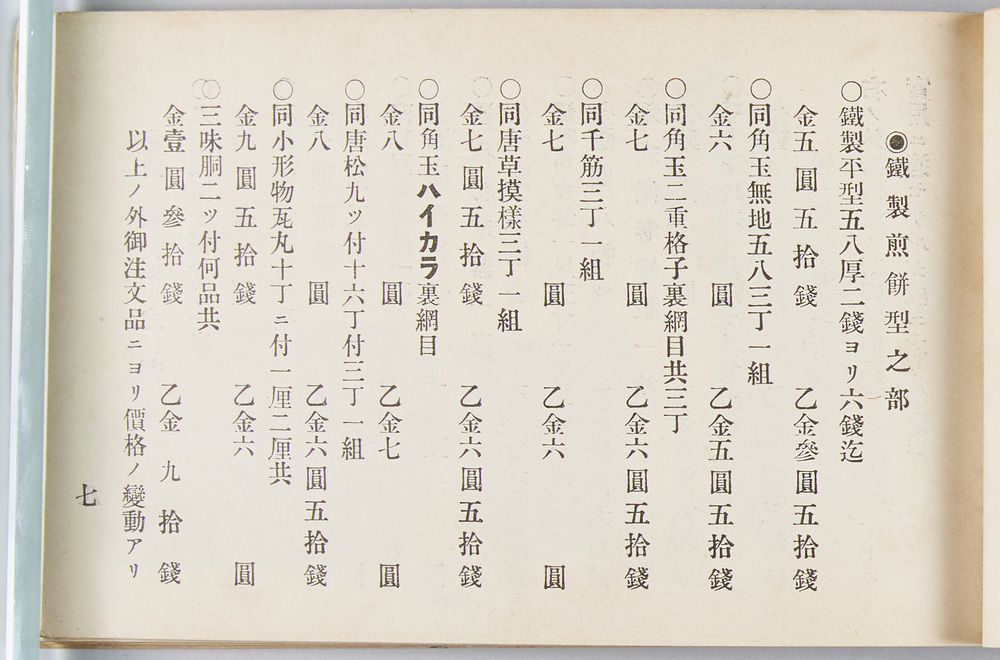 ◉鐵製煎餅型之部
○鐵製平型五八厚二錢ヨリ六錢迄
金五圓五拾錢 乙金參圓五拾錢
○同角玉無地五八三丁一組
金六圓 乙金五圓五拾錢
○同角玉二重格子裏網目共三丁
金七圓 乙金六圓五拾錢
○同千筋三丁一組
金七圓 乙金六圓
○同唐草摸樣三丁一組
金七圓五拾錢 乙金六圓五拾錢
○同角玉ハイカラ裏網目
金八圓 乙金七圓
○同唐松九ツ付十六丁付三丁一組
金八圓 乙金六圓五拾錢
○同小形物瓦丸十丁ニ付一厘二厘共
金九圓五拾錢 乙金六圓
○三味胴二ツ付何品共
金壹圓參拾錢 乙金九拾錢
以上ノ外御注文品ニヨリ價格ノ變動アリ
七